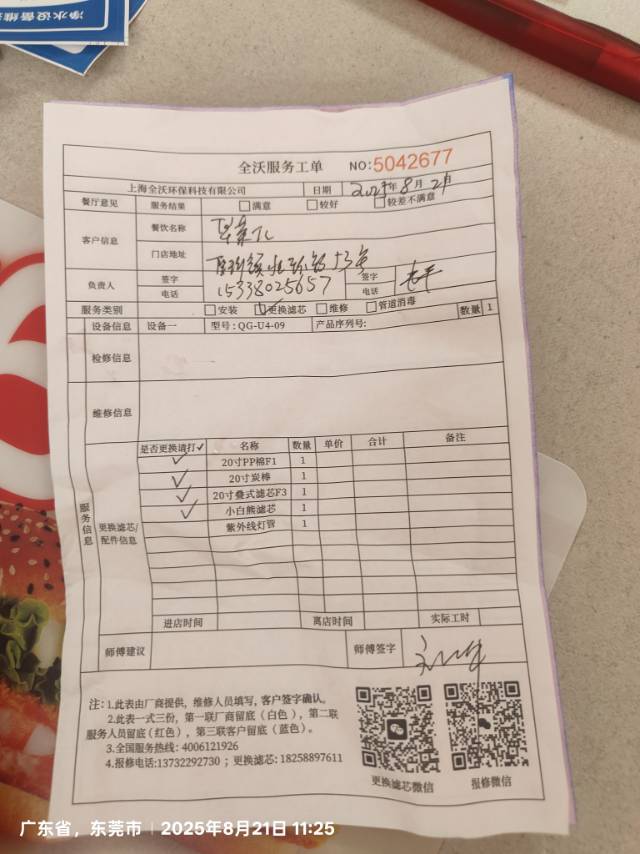 净水设备维
全沃服务工单 NO:5042677
上海全沃环保科技有限公司 日期 2025年8月21
餐厅意见 服务结果 □满意 □较好 □较差不满意
客户信息 餐饮名称
门店地址
负责人 签字 签字
电话 15338025657 电话
服务类别 □安装 ☑更换滤芯 □维修 □管道消毒 数量 1
设备信息 设备一 型号:QG-U4-09 产品序列号:
检修信息
维修信息
服务信息
更换滤芯/配件信息
是否更换请打✓ 名称 数量 单价 合计 备注
✓ 20寸PP棉F1 1
✓ 20寸炭棒 1
✓ 20寸叠式滤芯F3 1
✓ 小白熊滤芯 1
紫外线灯管 1
进店时间 离店时间 实际工时
师傅建议 师傅签字
注:1.此表由厂商提供,维修人员填写,客户签字确认。
2.此表一式三份,第一联厂商留底(白色),第二联
服务人员留底(红色),第三联客户留底(蓝色)。
3.全国服务热线:4006121926
4.报修电话:13732292730;更换滤芯:18258897611
更换滤芯微信 报修微信
广东省,东莞市 | 2025年8月21日 11:25